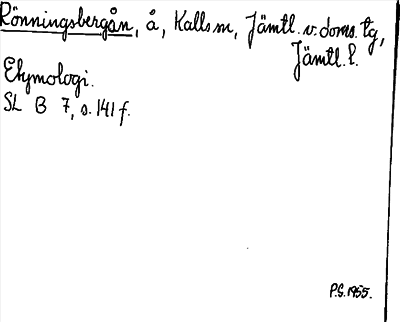 Rönningsbergån, å, Kalls sn, Jämtl. v. doms. tg,
Jämtl. l.
Etymologi.
SL B 7, s. 141 f.
P.S. 1955.